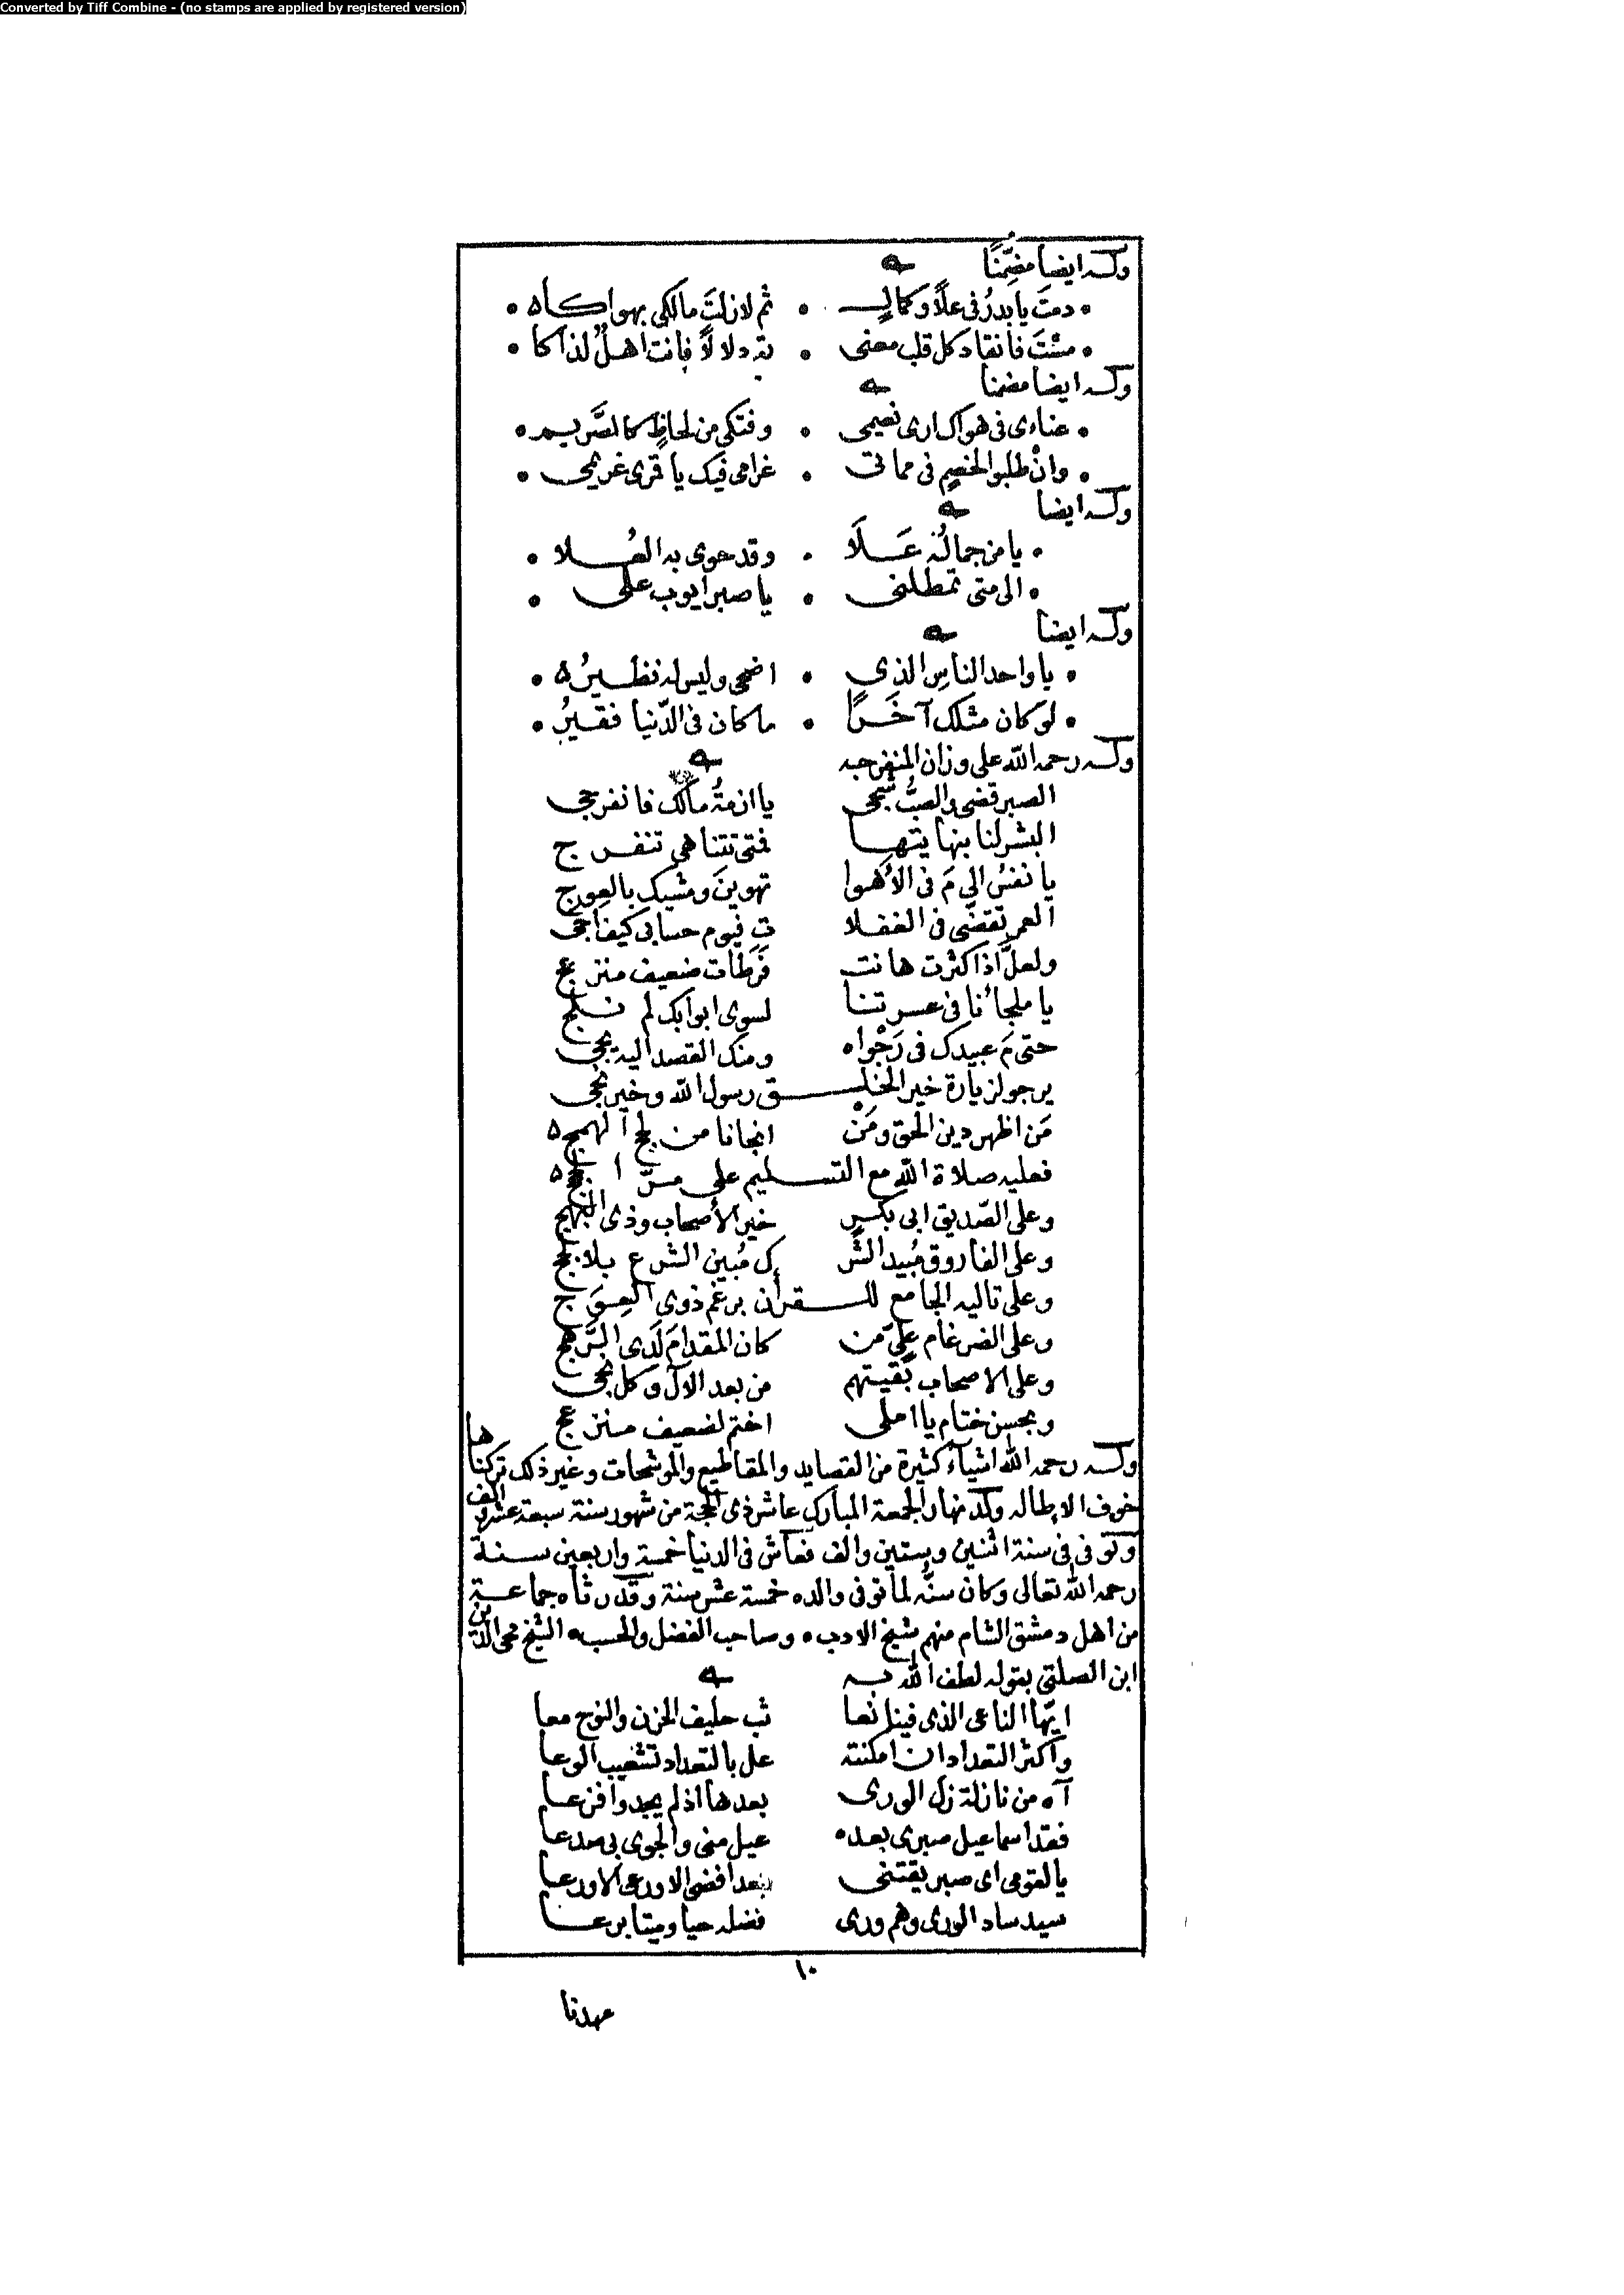 Converted by Tiff Combine - (no stamps are applied by registered version)
وله ايضا مضمّنًا
دمتَ يا بدرُ في علاً وكمالٍ • ثم لا زلتَ مالكي بهواكا
مسْتَ فانقاد كل قلب معنى • ته دلالاً فانت اهلٌ لذاكا
وله ايضا مضمنا
عناءى في هواك ارى نعيمى • وفتكي من لحاظٍ كالصَّريم
وانْ طلبوا لخصمٍ في مماتى • غرامى فيك يا قمرى غريمى
وله ايضا
يا من جمالُه عَلَا • وقد حوى به العُلا
الى متى تمطلنى • يا صبر ايوب على
وله ايضا
يا واحد الناسِ الذي • اضحى وليس له نظيرُ
لو كان مثلك آخَرًا • ما كان في الدّنيا فقيرُ
وله رحمه الله على وزان المنفرجه
الصبر قضى والصبُّ شجى يا ازمةُ مالك فانفرجى
البشر لنا بنهايتها فمتى تتناهى تنفرج
يا نفسُ الى مَ فى الأهوا تهوينَ ومشيك بالعِوج
العمر تقضّى فى الغفلا تِ فيوم حسابى كيف اجى
ولعلَّ اذا كثرت هانت فَرَطات ضعيف منزعج
يا ملجائنا فى عسرتنا لسوى ابوابك لم نلج
حتى مَ عبيدك فى رَجْواه ومنك القصد اليه يجى
يرجو لزيارة خير الخلق رسول الله وخير نجى
مَن اظهر دين الحق ومَنْ انجانا من لجج الهمج
فعليه صلاة الله مع التسليم على مرّ
وعلى الصّديق ابى بكرٍ خير الأصحاب وذى النهج
وعلى الفاروق مُبيد الشّر ك مُبين الشرع بلا
وعلى تاليه الجامع للقرأن برغم ذوى العِوَج
وعلى الضرغام عليّ من كان المقدامَ لَدى الرَّهج
وعلى الاصحاب بَقيتهم من بعد الآل وكل نجى
وبحسن ختام يا املى اختم لضعيف منزعج
وله رحمه الله اشيآء كثيرة من القصايد والمقاطيع والموشحات وغير ذلك تركناها
خوف الاطاله ولد نهار الجمعة المبارك عاشر ذى الحجة من شهور سنة سبعة عشر والف
وتوفى فى سنة اثنين وستين والف فعاش فى الدنيا خمسة واربعين سنة
رحمه الله تعالى وكان سنُّه لما توفى والده خمسة عشر سنة وقد رثاه جماعة
من اهل دمشق الشام منهم شيخ الادب • وصاحب الفضل والحسب • الشيخ محى الدين
ابن الصلتى بقوله لطف الله به
ايّها الناعى الذى فينا نعا ثب حليف الحزن والنوح معا
واكثر التعداد ان امكنته عل بالتعداد تشغيب الوعا
آه من نازلة زل الورى بعدها اذ لم يجدوا فزعا
فقد اسماعيل صبرى بعده عيل منى والجوى بى صدعا
يا لقومى اى صبر يقتنى بعد افضى الاورعى الاورعا
سيد ساد الورى وهم ورى فضله حيا وميتا برعا
١٠
عهدنا